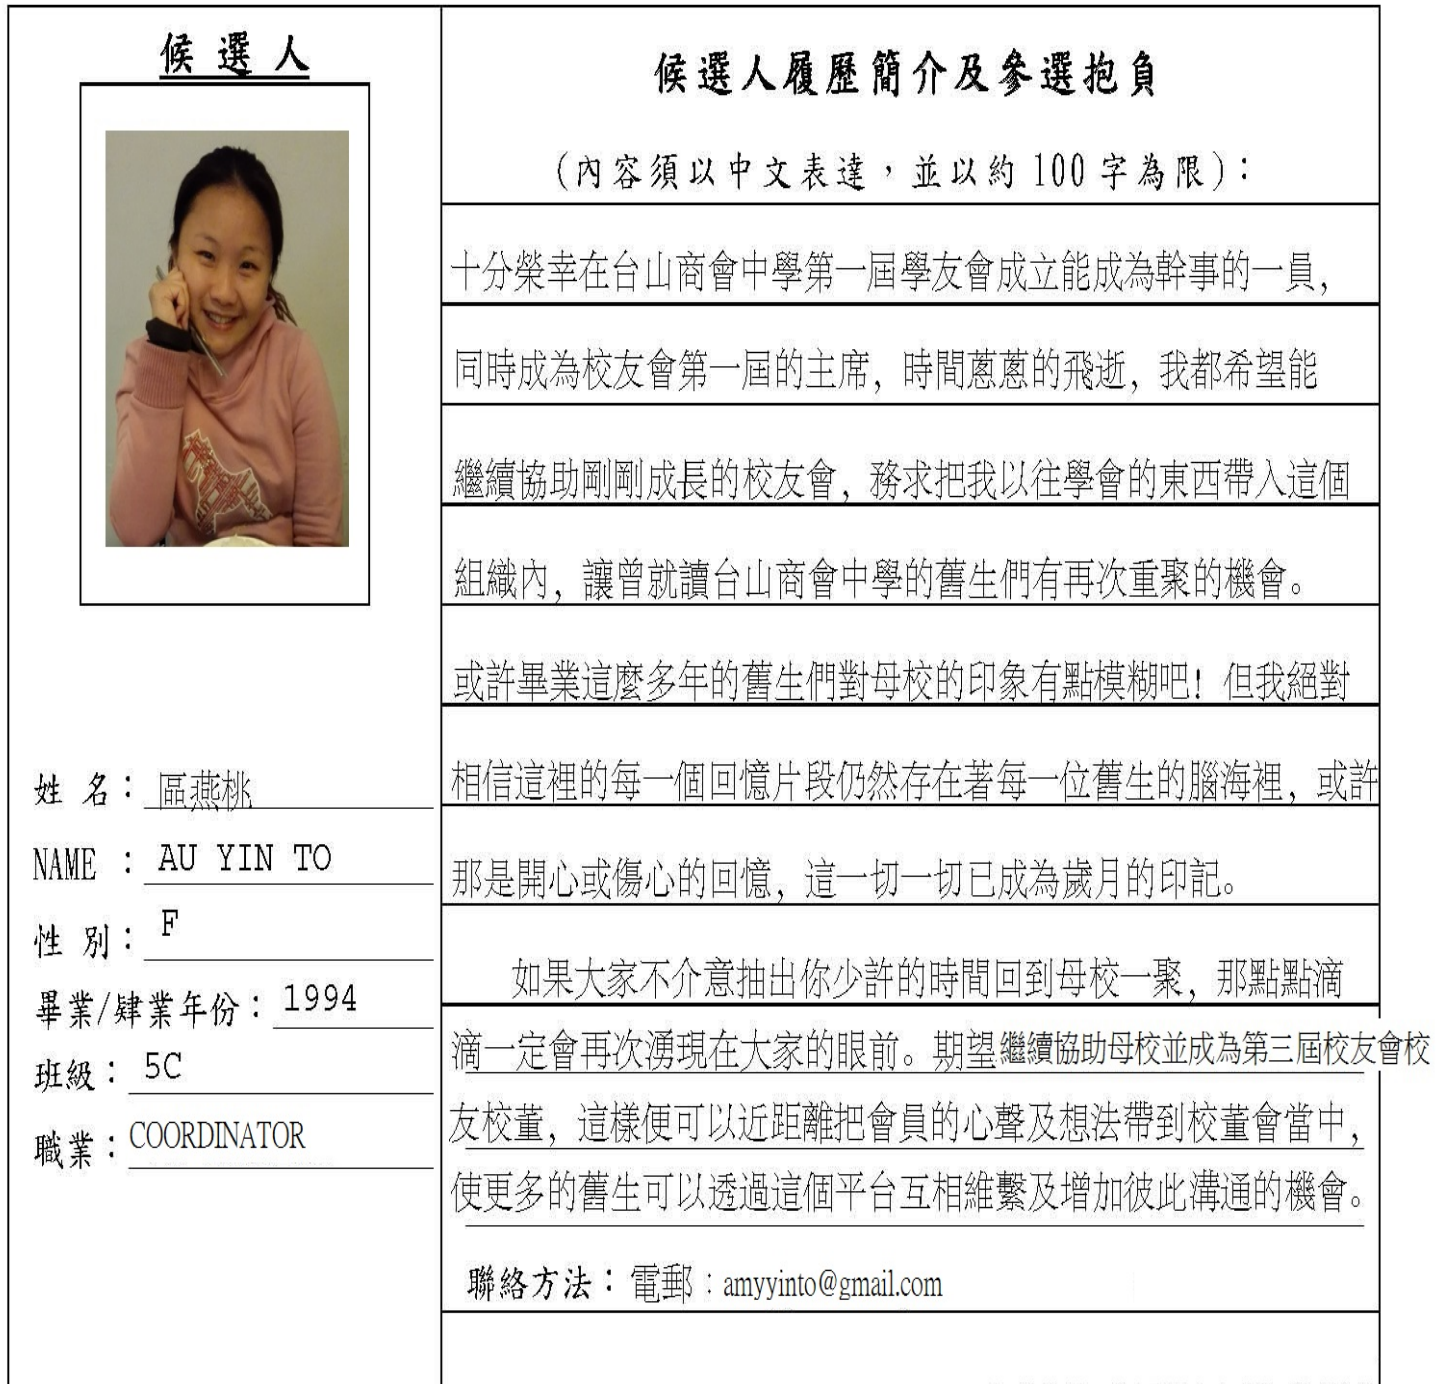 候選人
姓名：區燕桃
NAME：AU YIN TO
性別：F
畢業/肄業年份：1994
班級：5C
職業：COORDINATOR
候選人履歷簡介及參選抱負
(內容須以中文表達，並以約 100 字為限)：
十分榮幸在台山商會中學第一屆學友會成立能成為幹事的一員，
同時成為校友會第一屆的主席，時間蔥蔥的飛逝，我都希望能
繼續協助剛剛成長的校友會，務求把我以往學會的東西帶入這個
組織內，讓曾就讀台山商會中學的舊生們有再次重聚的機會。
或許畢業這麼多年的舊生們對母校的印象有點模糊吧！但我絕對
相信這裡的每一個回憶片段仍然存在著每一位舊生的腦海裡，或許
那是開心或傷心的回憶，這一切一切已成為歲月的印記。
如果大家不介意抽出你少許的時間回到母校一聚，那點點滴
滴一定會再次湧現在大家的眼前。期望繼續協助母校並成為第三屆校友會校
友校董，這樣便可以近距離把會員的心聲及想法帶到校董會當中，
使更多的舊生可以透過這個平台互相維繫及增加彼此溝通的機會。
聯絡方法：電郵：amyyinto@gmail.com